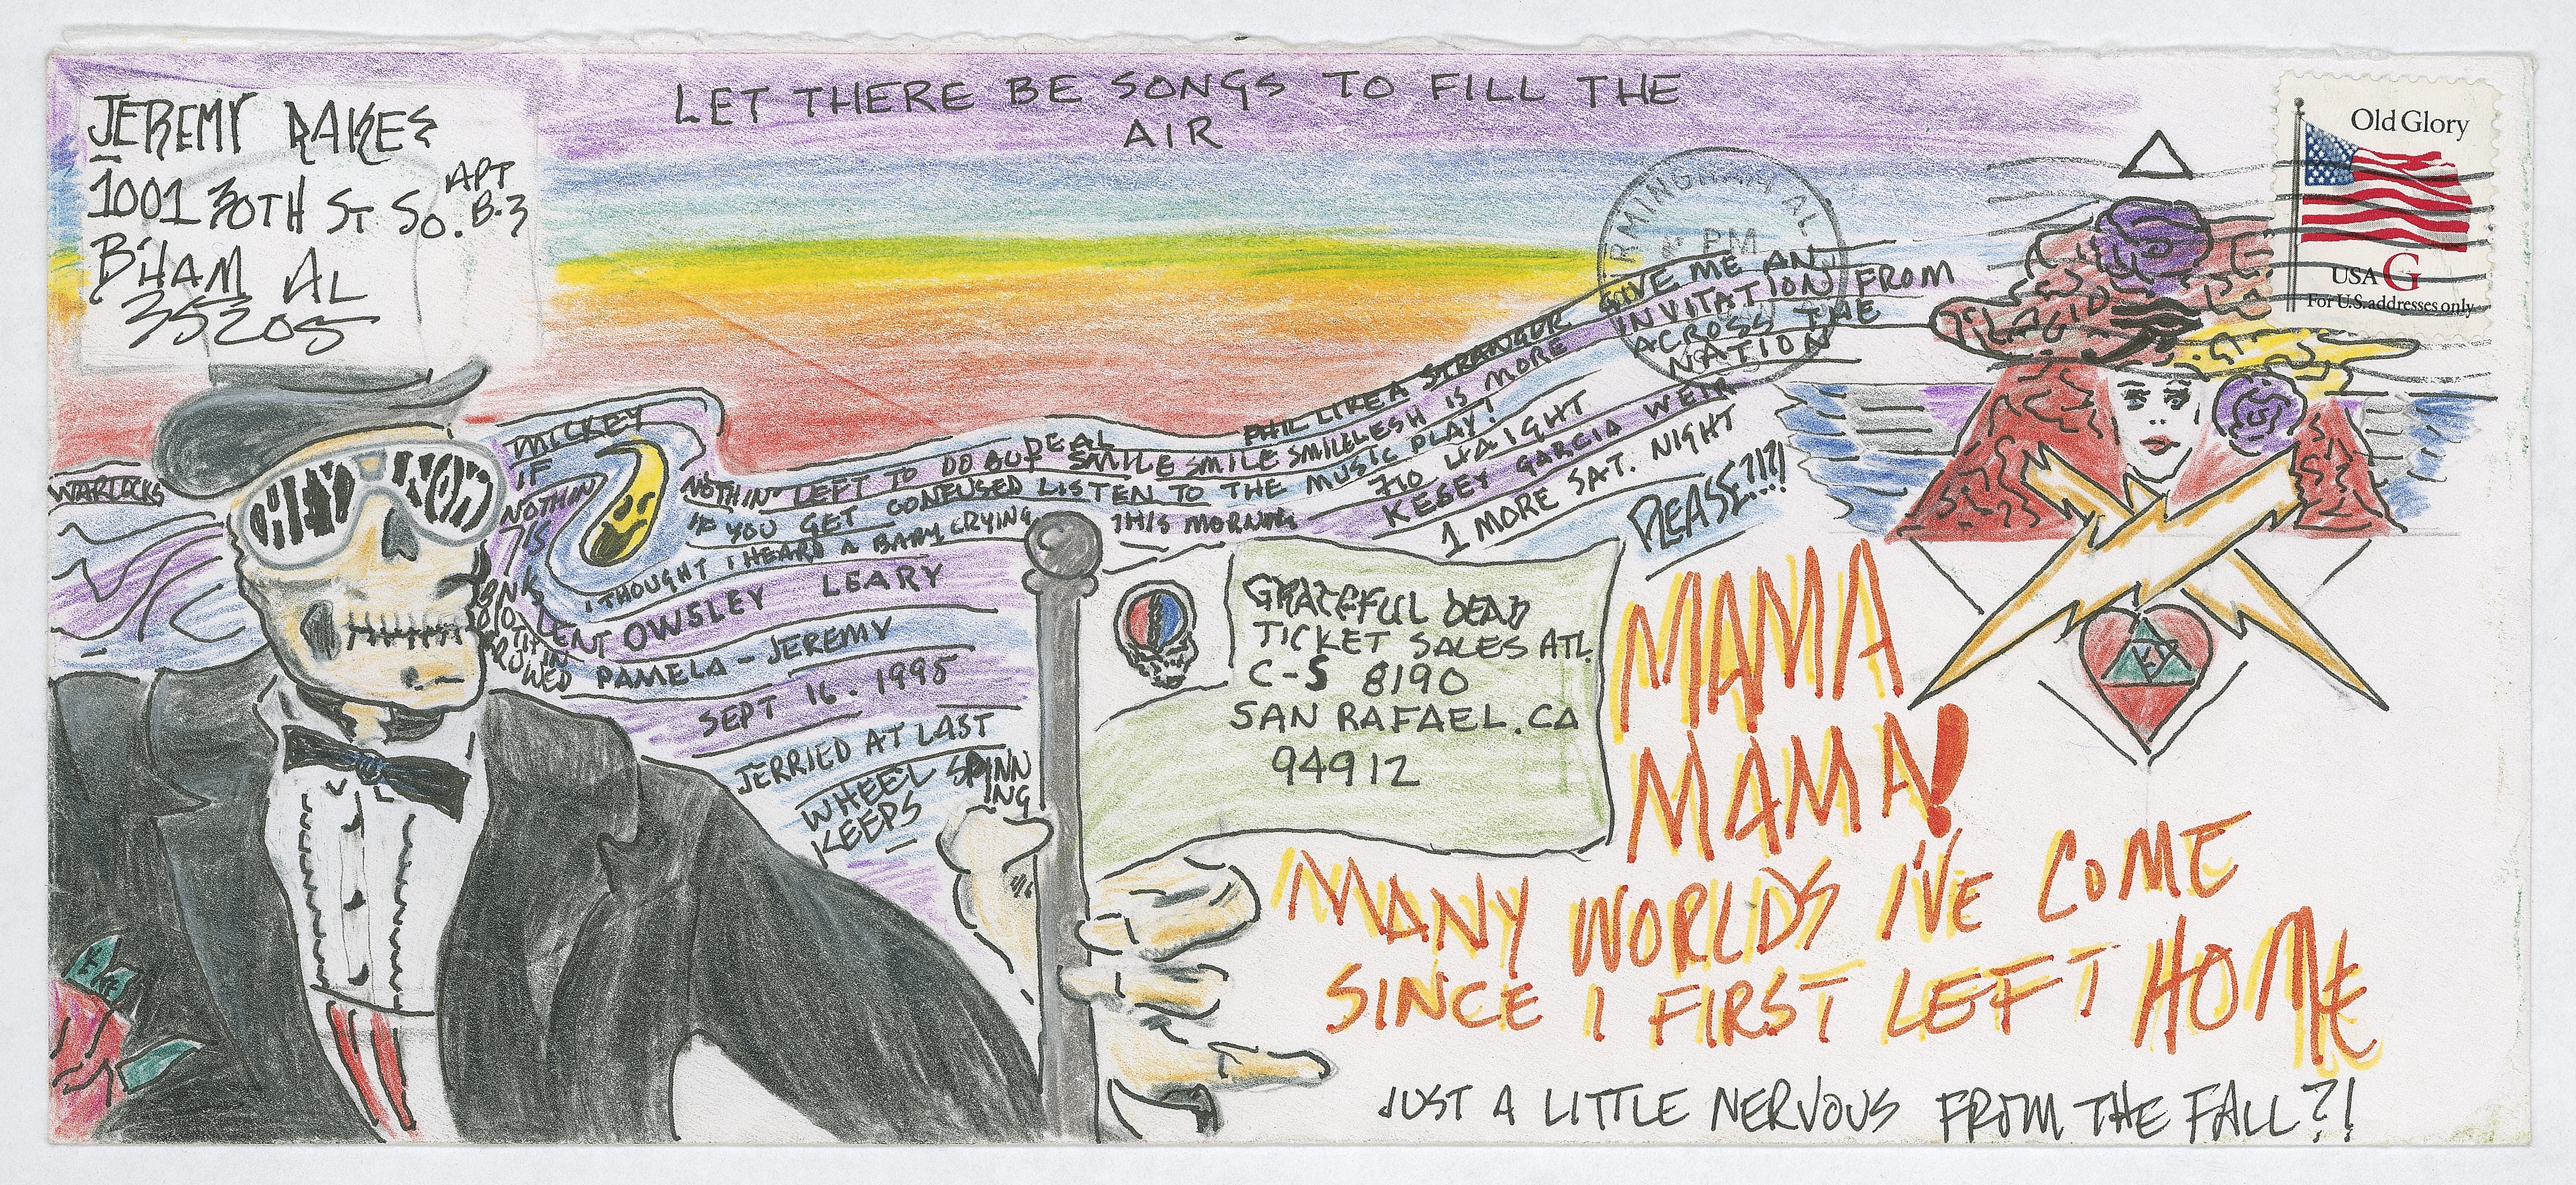 LET THERE BE SONGS TO FILL THE
AIR
JEREMY RAKES
1001 30TH ST SO. APT B-3
B'HAM AL
35205
Old Glory
USA G
For U.S. addresses only
BIRMINGHAM AL
PM
WARLOCKS
MICKEY
IF
NOTHIN
IS
NOTHIN' LEFT TO DO BUT SMILE SMILE SMILE
DEAL
IF YOU GET CONFUSED LISTEN TO THE MUSIC PLAY!
I THOUGHT I HEARD A BABY CRYING THIS MORNING
PHIL LIKE A STRANGER GIVE ME AN
INVITATION FROM
ACROSS THE
NATION
LESH IS MORE
710 HAIGHT
KESEY GARCIA WEIR
1 MORE SAT. NIGHT
PLEASE?!?!
BRENT OWSLEY LEARY
PAMELA - JEREMY
SEPT 16. 1995
JERRIED AT LAST
WHEEL SPINNING
KEEPS
GRATEFUL DEAD
TICKET SALES ATL.
C-S 8190
SAN RAFAEL. CA
94912
MAMA
MAMA!
MANY WORLDS I'VE COME
SINCE I FIRST LEFT HOME
JUST A LITTLE NERVOUS FROM THE FALL?!